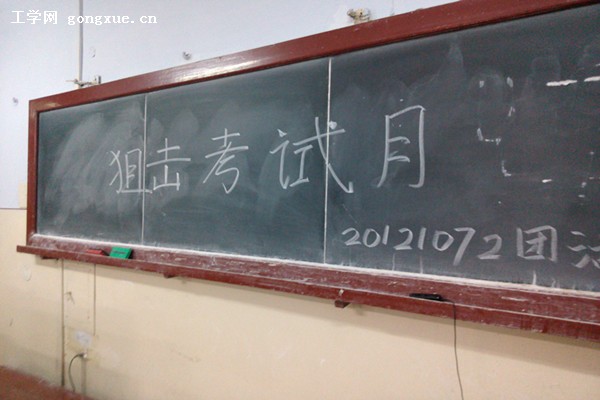 工学网 gongxue.cn
狙击考试月
20121072团